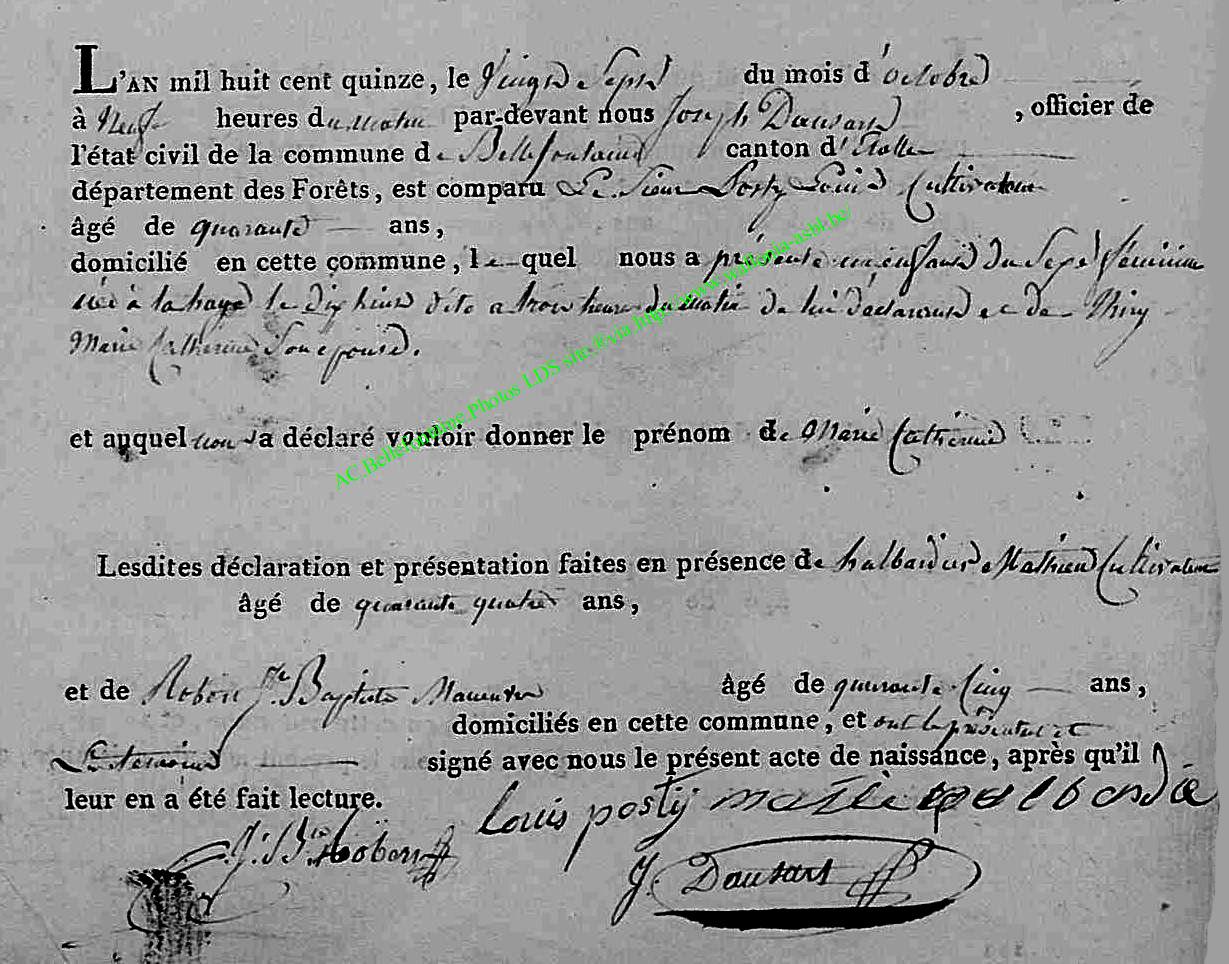 L'AN mil huit cent quinze, le Vingt Sept du mois d'octobre
à Neuf heures du matin par-devant nous Joseph Dausart, officier de
l'état civil de la commune de Bellefontaine canton d'Etalle
département des Forêts, est comparu Le Sieur Posty Louis Cultivateur
âgé de quarante ans,
domicilié en cette commune, lequel nous a présenté un enfant du Sexe féminin
née à lahage le dix huit dito a trois heure du matin de lui déclarant et de Thiry
Marie Catherine Son épouse.
et auquel il a déclaré vouloir donner le prénom de Marie Catherine
Lesdites déclaration et présentation faites en présence de halbardier Mathieu Cultivateur
âgé de quarante quatre ans,
et de Robert Jn Baptiste âgé de quarante Cinq ans,
domiciliés en cette commune, et ont le présentant et
Les temoins signé avec nous le présent acte de naissance, après qu'il
leur en a été fait lecture. Louis posty
J. Bte. Robert J. Dausart
AC.Bellefontaine.Photos LDS site.®via.http://www.wallonia-asbl.be/